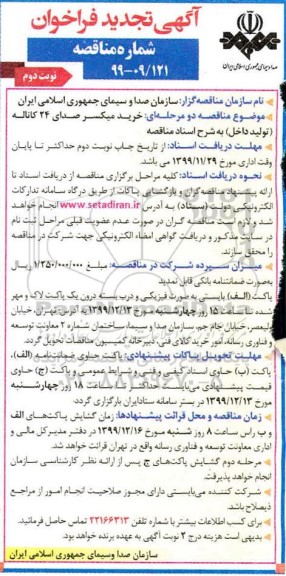 آگهی تجدید فراخوان
شماره مناقصه
۹۹-۰۹/۱۲۱
صدا و سیمای جمهوری اسلامی ایران
نوبت دوم
نام سازمان مناقصه‌گزار: سازمان صدا و سیمای جمهوری اسلامی ایران
موضوع مناقصه دو مرحله‌ای: خرید میکسر صدای ۲۴ کاناله
(تولید داخل) به شرح اسناد مناقصه
مهلت دریافت اسناد: از تاریخ چاپ نوبت دوم حداکثر تا پایان
وقت اداری مورخ ۱۳۹۹/۱۱/۲۹ می باشد.
نحوه دریافت اسناد: کلیه مراحل برگزاری مناقصه از دریافت اسناد تا
ارائه پیشنهاد مناقصه‌گران و بازگشایی پاکات از طریق درگاه سامانه تدارکات
الکترونیکی دولت (ستاد) به آدرس www.setadiran.ir انجام خواهد
شد و لازم است مناقصه گران در صورت عدم عضویت قبلی مراحل ثبت نام
در سایت مذکور و دریافت گواهی امضاء الکترونیکی جهت شرکت در مناقصه
را محقق سازند.
میزان سپرده شرکت در مناقصه: مبلغ ۱/۲۵۰/۰۰۰/۰۰۰ ریال
به‌صورت ضمانتنامه بانکی قابل تمدید
پاکت (الف) بایستی به صورت فیزیکی و درب بسته درون یک پاکت لاک و مهر
شده تا ساعت ۱۵ روز چهارشنبه مورخ ۱۳۹۹/۱۲/۱۳ به آدرس: تهران خیابان
ولیعصر، خیابان جام جم، سازمان صدا و سیما، ساختمان شماره ۲ معاونت توسعه
و فناوری رسانه، امور خرید کالای فنی، دبیرخانه کمیسیون مناقصات تحویل گردد.
مهلت تحویل پاکات پیشنهادی: پاکت حاوی ضمانتنامه (الف)،
پاکت (ب) حاوی اسناد کیفی و فنی و شرایط عمومی و پاکت (ج) حاوی
قیمت پیشنهادی می‌بایست حداکثر تا ساعت ۱۸ روز چهارشنبه
مورخ ۱۳۹۹/۱۲/۱۳ در بستر سامانه ستادایران بارگزاری گردد.
زمان مناقصه و محل قرائت پیشنهادها: زمان گشایش پاکت‌های الف
و ب راس ساعت ۸ روز شنبه مورخ ۱۳۹۹/۱۲/۱۶ در دفتر مدیرکل مالی و
اداری معاونت توسعه و فناوری رسانه واقع در تهران قرائت خواهد شد.
مرحله دوم گشایش پاکت‌های ج پس از ارائه نظر کارشناسی سازمان
انجام خواهد پذیرفت.
شرکت کننده می‌بایستی دارای مجوز صلاحیت انجام امور از مراجع
ذیصلاح باشد.
برای کسب اطلاعات بیشتر با شماره تلفن ۲۲۱۶۶۳۱۳ تماس حاصل فرمائید.
بدیهی است هزینه درج ۲ نوبت آگهی به عهده برنده خواهد بود.
سازمان صدا وسیمای جمهوری اسلامی ایران